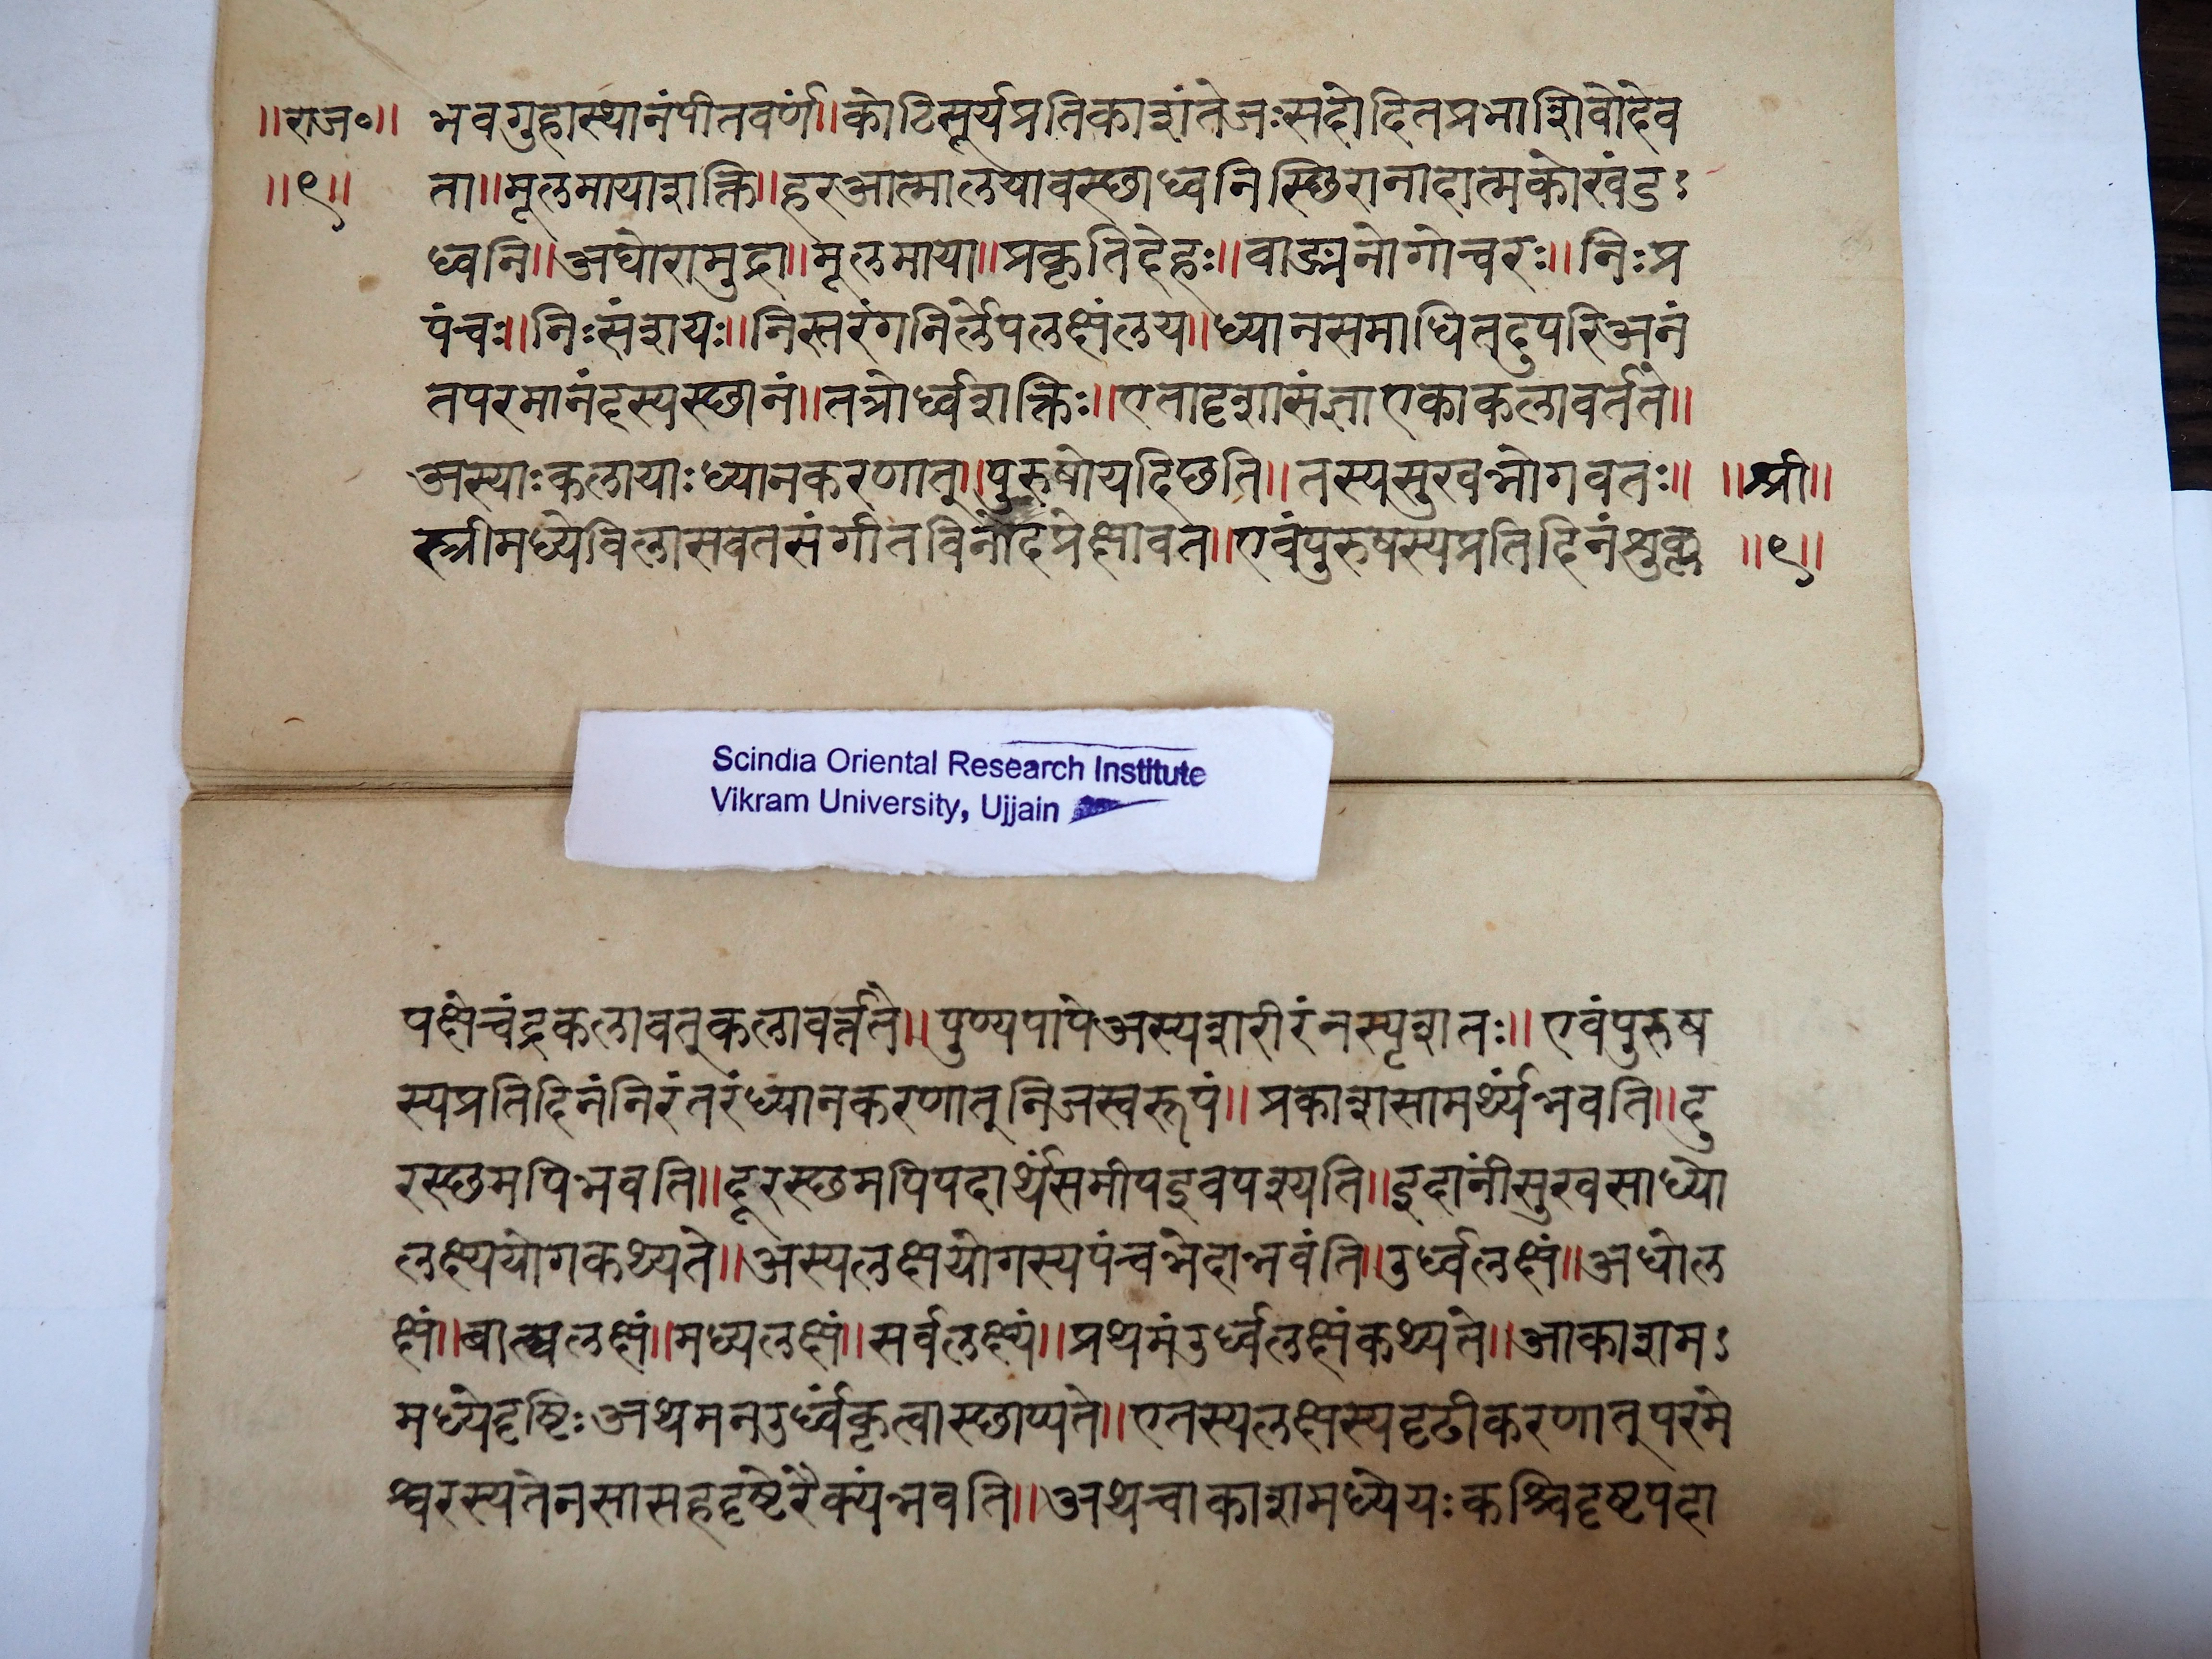 ॥राज०॥ भवगुहास्थानंपीतवर्णं॥कोटिसूर्यप्रतिकाशंतेजःसहोदितप्रभाशिवोदेव
॥९॥ ता॥मूलमायाशक्ति॥हरआत्मालयावस्छाध्वनिस्छिरानादात्मकोखंडऽ
ध्वनि॥अघोरामुद्रा॥मूलमाया॥प्रकृतिदेहः॥वाङ्मनोगोचरः॥निःप्र
पंचः॥निःसंशयः॥निस्तरंगनिर्लेपलक्षंलय॥ध्यानसमाधितदुपरिअनं
तपरमानंदस्यस्छानं॥तत्रोर्ध्वशक्तिः॥एतादृशासंज्ञाएकाकलावर्तते॥
अस्याःकलायाःध्यानकरणात्॥पुरुषोयदिछति॥तस्यसुखभोगवतः॥ ॥श्री॥
स्त्रीमध्येविलासवतसंगीतविनोदप्रेक्षावत॥एवंपुरुषस्यप्रतिदिनंशुक्ल ॥९॥
Scindia Oriental Research Institute
Vikram University, Ujjain
पक्षेचंद्रकलावत्कलावर्त्तते॥पुण्यपापेअस्यशरीरंनस्पृशतः॥एवंपुरुष
स्यप्रतिदिनंनिरंतरंध्यानकरणात्निजस्वरूपं॥प्रकाशसामर्थ्यंभवति॥दु
रस्छमपिभवति॥दूरस्छमपिपदार्थंसमीपइवपश्यति॥इदानींसुखसाध्यो
लक्ष्ययोगकथ्यते॥अस्यलक्षयोगस्यपंचभेदाभवंति॥उर्ध्वलक्षं॥अधोल
क्षं॥बाह्यलक्षं॥मध्यलक्षं॥सर्वलक्ष्यं॥प्रथमंउर्ध्वलक्षंकथ्यते॥आकाशमऽ
मध्येदृष्टिःअथमनउर्ध्वंकृत्वास्छाप्यते॥एतस्यलक्षस्यदृढीकरणात्परमे
श्वरस्यतेनसासहदृष्टेरैक्यंभवति॥अथचाकाशमध्येयःकश्चिदृष्टपदा